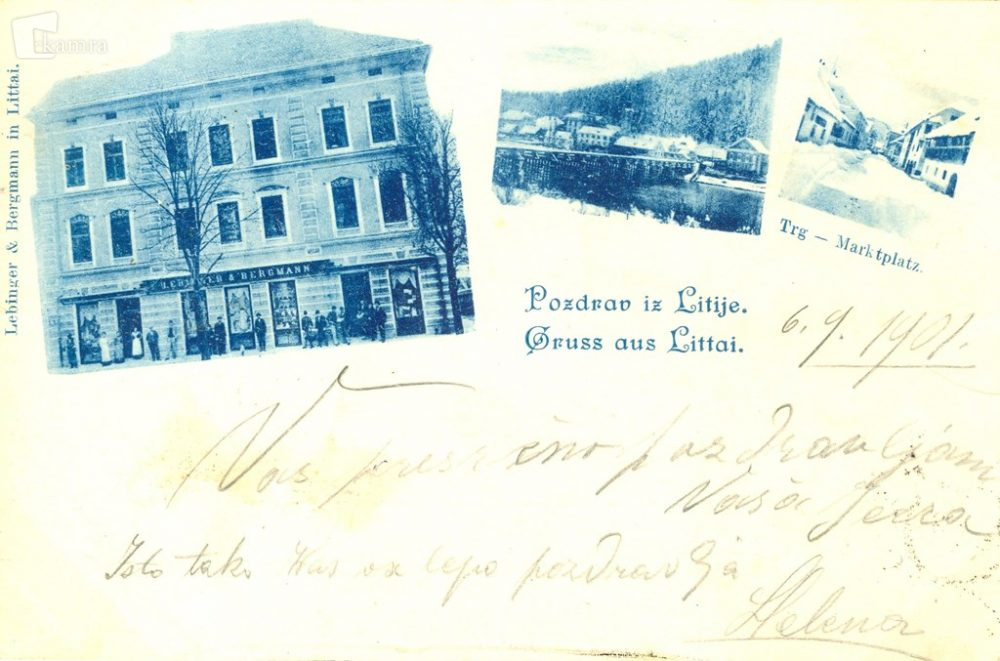 kamra
Lebinger & Bergmann in Littai.
LEBINGER & BERGMANN
Trg – Marktplatz.
Pozdrav iz Litije.
Gruss aus Littai.
6. 9. 1901.
Vas presrčno pozdravljam
Vaša
Isto tako Vas lepo pozdravlja
Helena